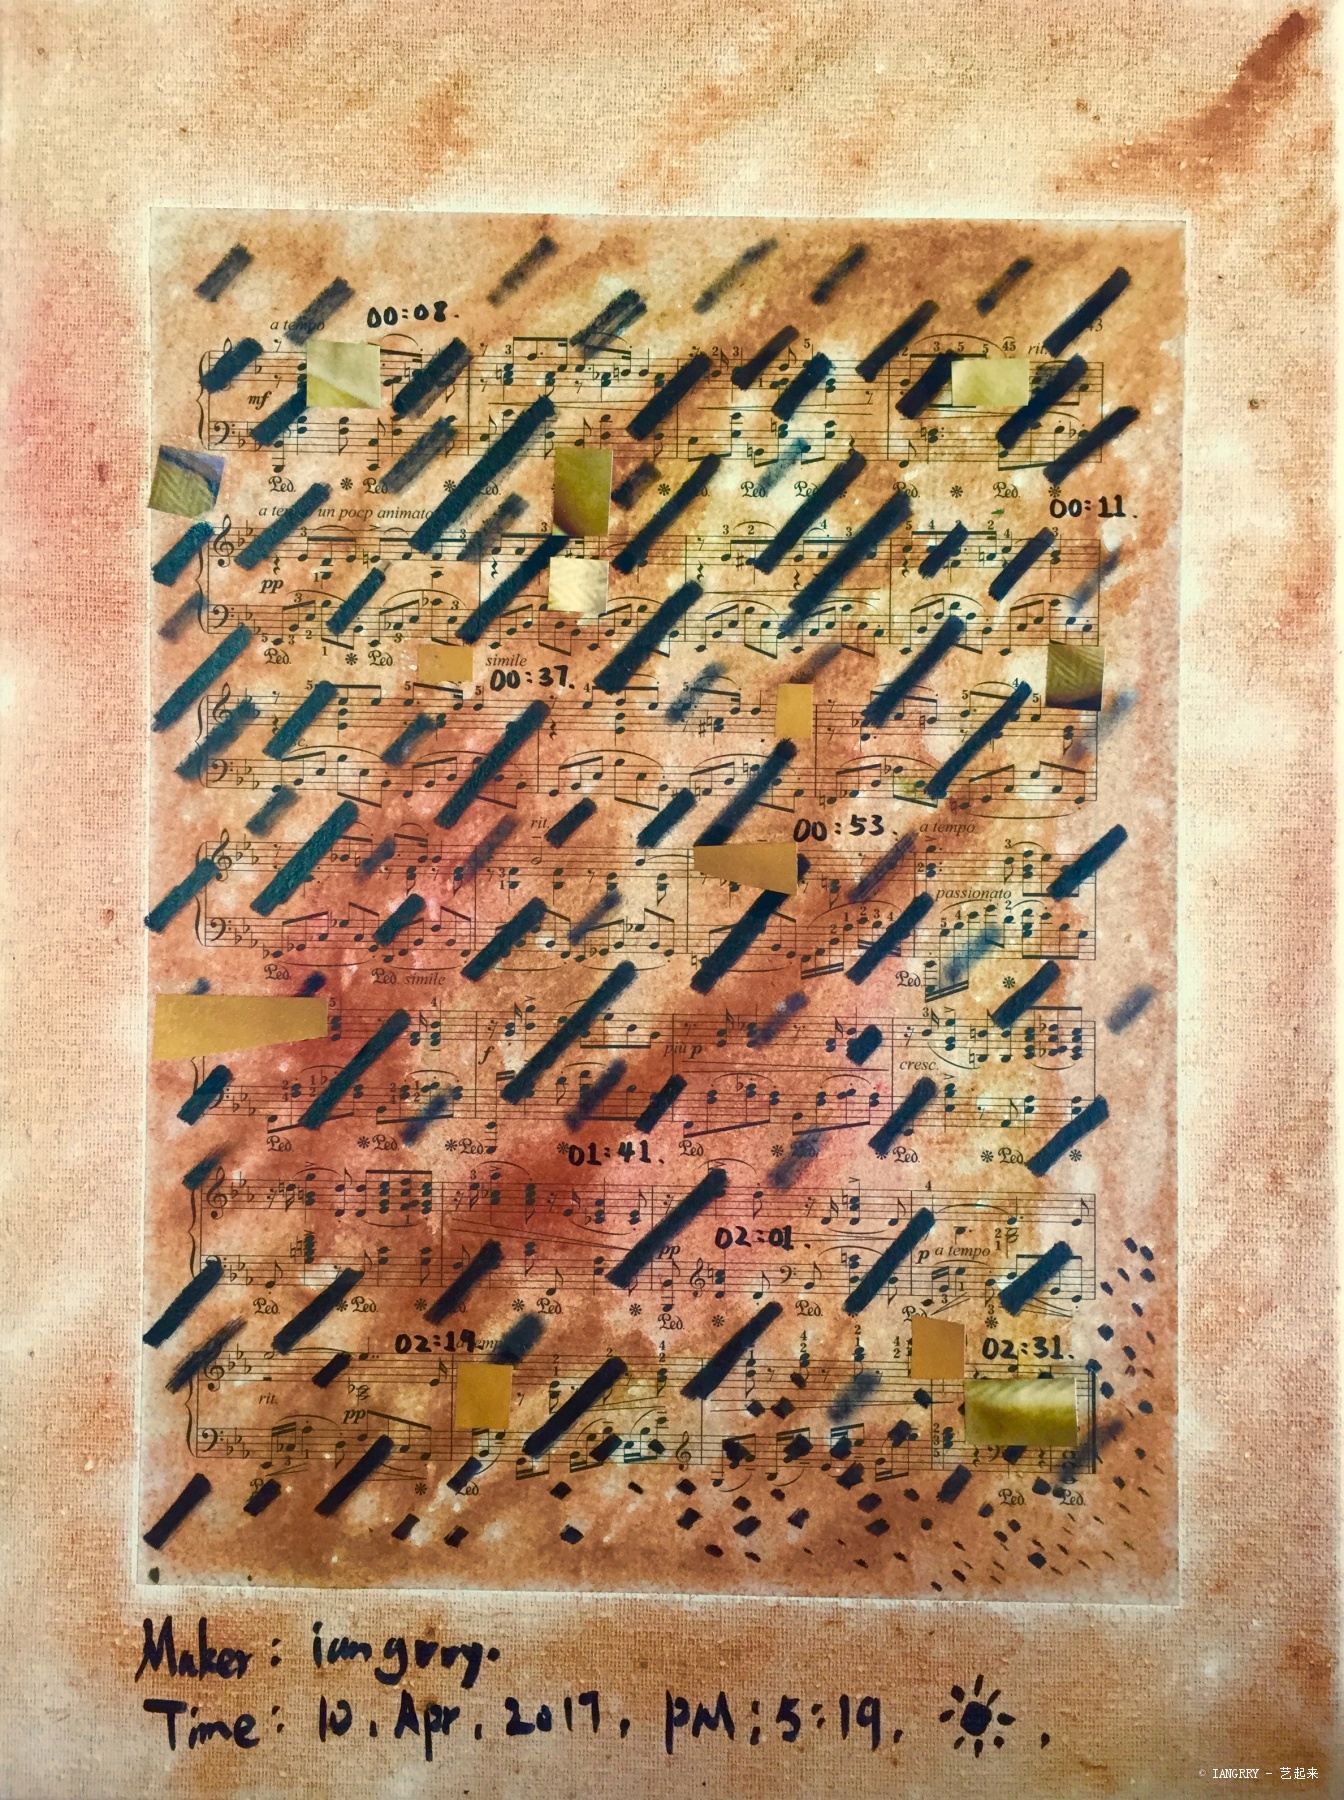 00:08.
a tempo
rit.
mf
Ped. Ped. Ped. Ped. Ped. Ped.
00:11.
un pocp animato
pp
Ped. Ped.
simile
00:37.
rit.
00:53.
a tempo
passionato
Ped. Ped. simile
Ped.
f
più p
cresc.
Ped. Ped. Ped. Ped. Ped. Ped.
01:41.
02:01.
pp
p a tempo
Ped. Ped. Ped. Ped. Ped. Ped.
02:19.
02:31.
rit.
pp
Ped. Ped. Ped.
Maker: iangrry.
Time: 10, Apr, 2017, PM; 5:19.
© IANGRRY - 艺起来